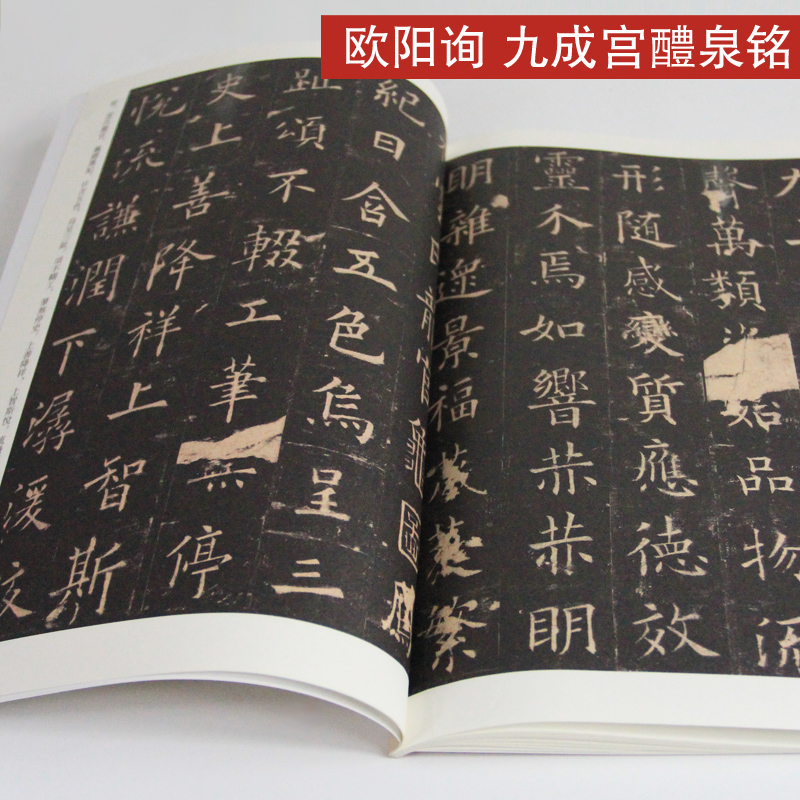 欧阳询 九成宫醴泉铭
聲萬類始品物流
形隨感變質應德效
靈介焉如響赫赫明
明雜遝景福葳蕤繁
龍官龜圖鳳
紀日含五色烏呈三
趾頌不輟工筆無停
史上善降祥上智斯
悅流謙潤下潺湲皎